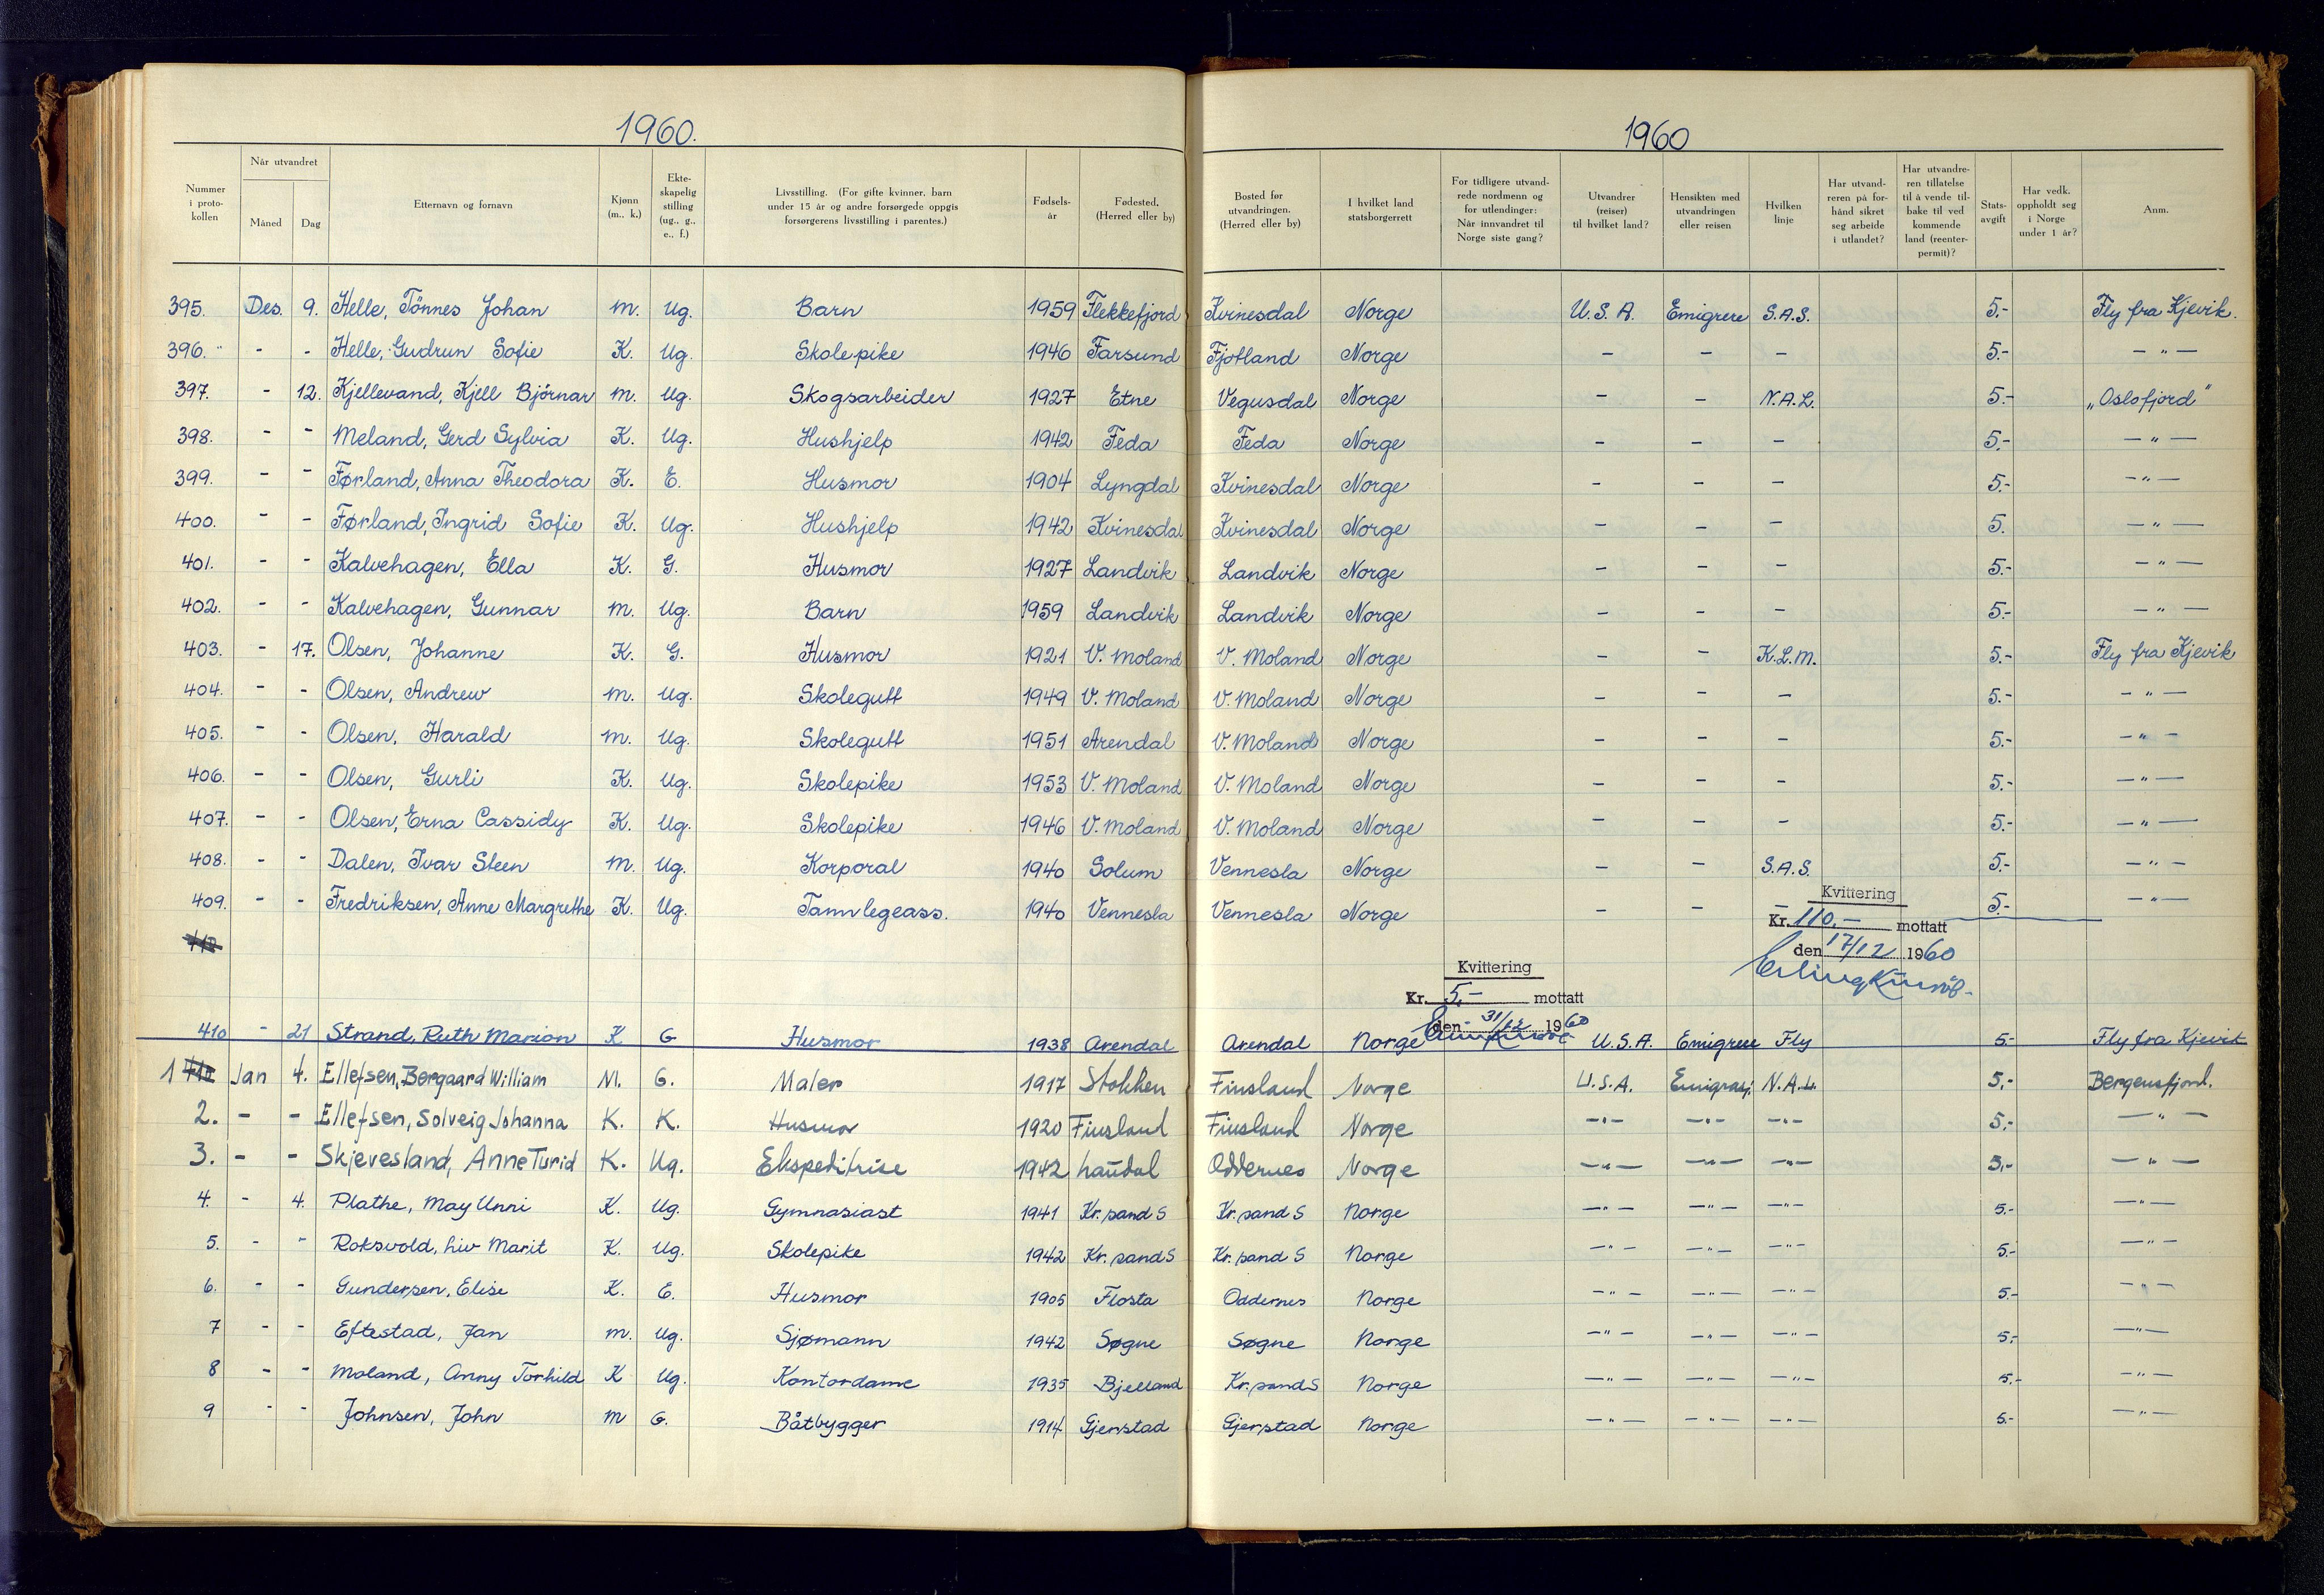 1960.
1960
Nummer i proto- kollen | Når utvandret Måned Dag | Etternavn og fornavn | Kjønn (m., k.) | Ekte- skapelig stilling (ug., g., e., f.) | Livsstilling. (For gifte kvinner, barn under 15 år og andre forsørgede oppgis forsørgerens livsstilling i parentes.) | Fødsels- år | Fødested. (Herred eller by) | Bosted før utvandringen. (Herred eller by) | I hvilket land statsborgerrett | For tidligere utvand- rede nordmenn og for utlendinger: Når innvandret til Norge siste gang? | Utvandrer (reiser) til hvilket land? | Hensikten med utvandringen eller reisen | Hvilken linje | Har utvand- reren på for- hånd sikret seg arbeide i utlandet? | Har utvandre- ren tillatelse til å vende til- bake til ved kommende land (reenter- permit)? | Stats- avgift | Har vedk. oppholdt seg i Norge under 1 år? | Anm.
395. Des. 9. Helle, Tönnes Johan m. Ug. Barn 1959 Flekkefjord Kvinesdal Norge U.S.A. Emigrere S.A.S. 5.- Fly fra Kjevik.
396. - - Helle, Gudrun Sofie K. Ug. Skolepike 1946 Farsund Fjotland Norge - - - 5.- -"-
397. - 12. Kjellevand, Kjell Björnar m. Ug. Skogsarbeider 1927 Etne Vegusdal Norge - - N.A.L. 5.- „Oslofjord"
398. - - Meland, Gerd Sylvia K. Ug. Hushjelp 1942 Feda Feda Norge - - - 5.- -"-
399. - - Førland, Anna Theodora K. E. Husmor 1904 Lyngdal Kvinesdal Norge - - - 5.- -"-
400. - - Førland, Ingrid Sofie K. Ug. Hushjelp 1942 Kvinesdal Kvinesdal Norge - - - 5. -"-
401. - - Kalvehagen, Ella K. G. Husmor 1927 Landvik Landvik Norge - - - 5.- -"-
402. - - Kalvehagen, Gunnar m. Ug. Barn 1959 Landvik Landvik Norge - - - 5.- -"-
403. - 17. Olsen, Johanne K. G. Husmor 1921 V. Moland V. Moland Norge - - K.L.M. 5.- Fly fra Kjevik
404. - - Olsen, Andrew m. Ug. Skolegutt 1949 V. Moland V. Moland Norge - - - 5.- -"-
405. - - Olsen, Harald m. Ug. Skolegutt 1951 Arendal V. Moland Norge - - - 5.- -"-
406. - - Olsen, Gurli K. Ug. Skolepike 1953 V. Moland V. Moland Norge - - - 5.- -"-
407. - - Olsen, Erna Cassidy K. Ug. Skolepike 1946 V. Moland V. Moland Norge - - - 5.- -"-
408. - - Dalen, Ivar Steen m. Ug. Korporal 1940 Solum Vennesla Norge - - S.A.S. 5.- -"-
409. - - Fredriksen, Anne Margrethe K. Ug. Tannlegeass. 1940 Vennesla Vennesla Norge - - - 5.- -"-
Kvittering
Kr. 110,- mottatt
den 17/12 1960
410
Kvittering
Kr. 5,- mottatt
den 31/12 1960
410 - 21 Strand, Ruth Marion K G Husmor 1938 Arendal Arendal Norge U.S.A. Emigrere Fly 5.- Fly fra Kjevik
1 410 Jan 4. Ellefsen, Borgaard William M. G. Maler 1917 Stokken Finsland Norge U.S.A. Emigrasj. N.A.L. 5,- Bergensfjord.
2. - - Ellefsen, Solveig Johanna K. K. Husmor 1920 Finsland Finsland Norge -"- -"- -"- 5,- -"-
3. - - Skjevesland, Anne Turid K. Ug. Ekspeditrise 1942 Laudal Oddernes Norge -"- -"- -"- 5,- -"-
4. - 4. Plathe, May Unni K. Ug. Gymnasiast 1941 Kr.sand S Kr.sand S Norge -"- -"- -"- 5.- -"-
5. - - Roksvold, Liv Marit K. Ug. Skolepike 1942 Kr.sand S Kr.sand S Norge -"- -"- -"- 5.- -"-
6. - - Gundersen, Elise K. E. Husmor 1905 Flosta Oddernes Norge -"- -"- -"- 5.- -"-
7 - - Eftestad, Jan m. Ug. Sjømann 1942 Søgne Søgne Norge -"- -"- -"- 5,- -"-
8 - - Moland, Anny Torhild K Ug. Kontordame 1935 Bjelland Kr.sand S Norge -"- -"- -"- 5.- -"-
9 - - Johnsen, John m G. Båtbygger 1914 Gjerstad Gjerstad Norge -"- -"- -"- 5.- -"-